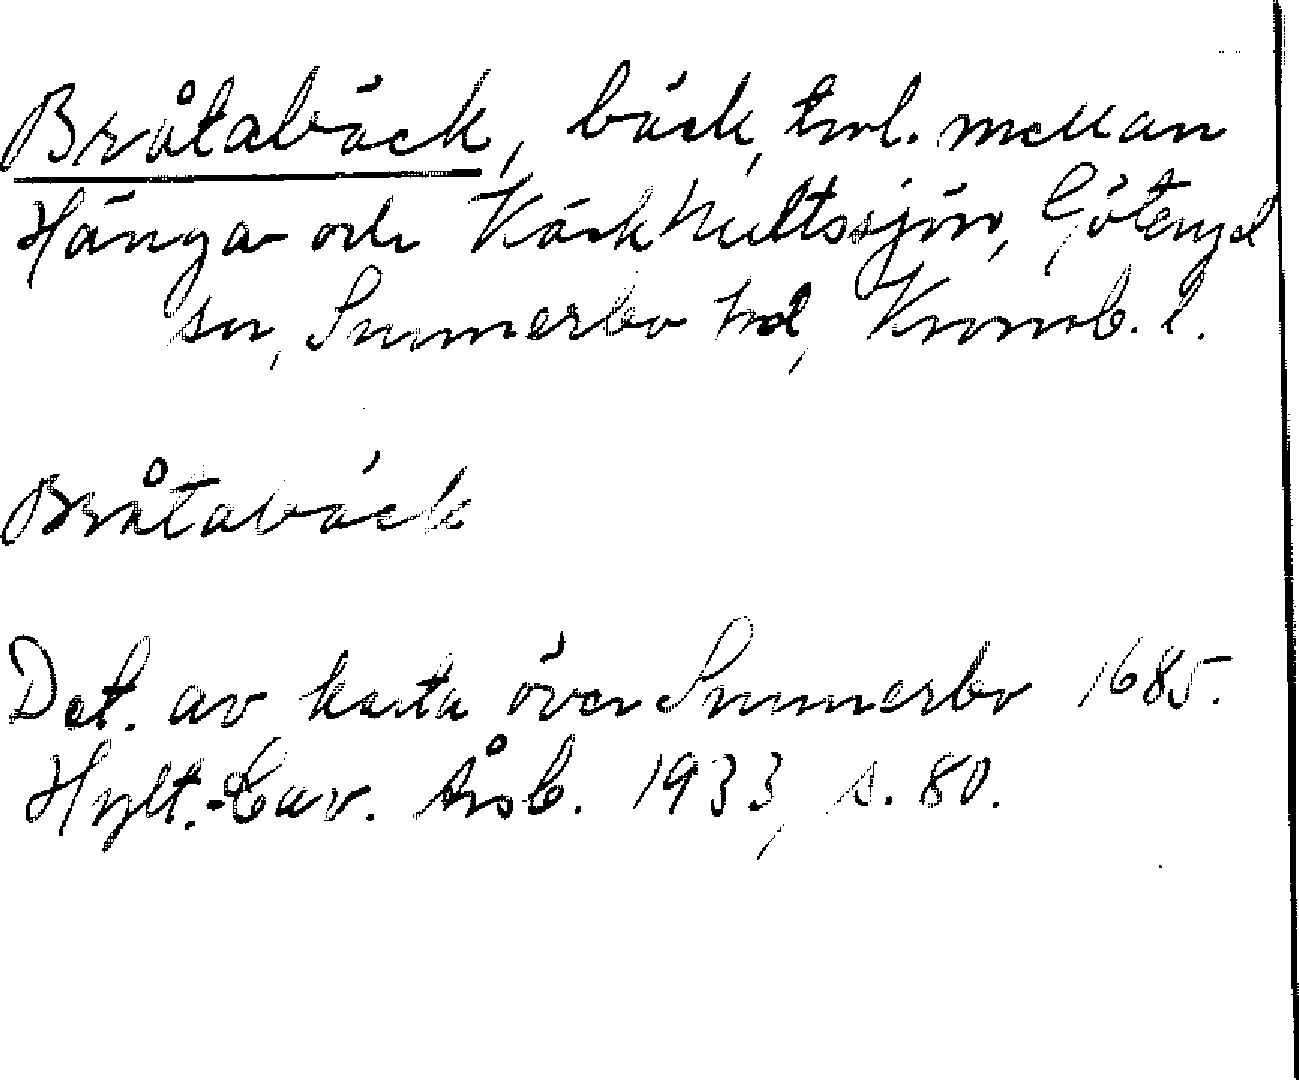 Bråtabäck, bäck, trol. mellan
Hånga och Kärkhultssjön, Göteryd
sn, Sunnerbo hd, Kronob. l.
Bråtabäck
Det. av karta över Sunnerbo 1685.
Hylt.-Cav. Årsb. 1933, s. 80.